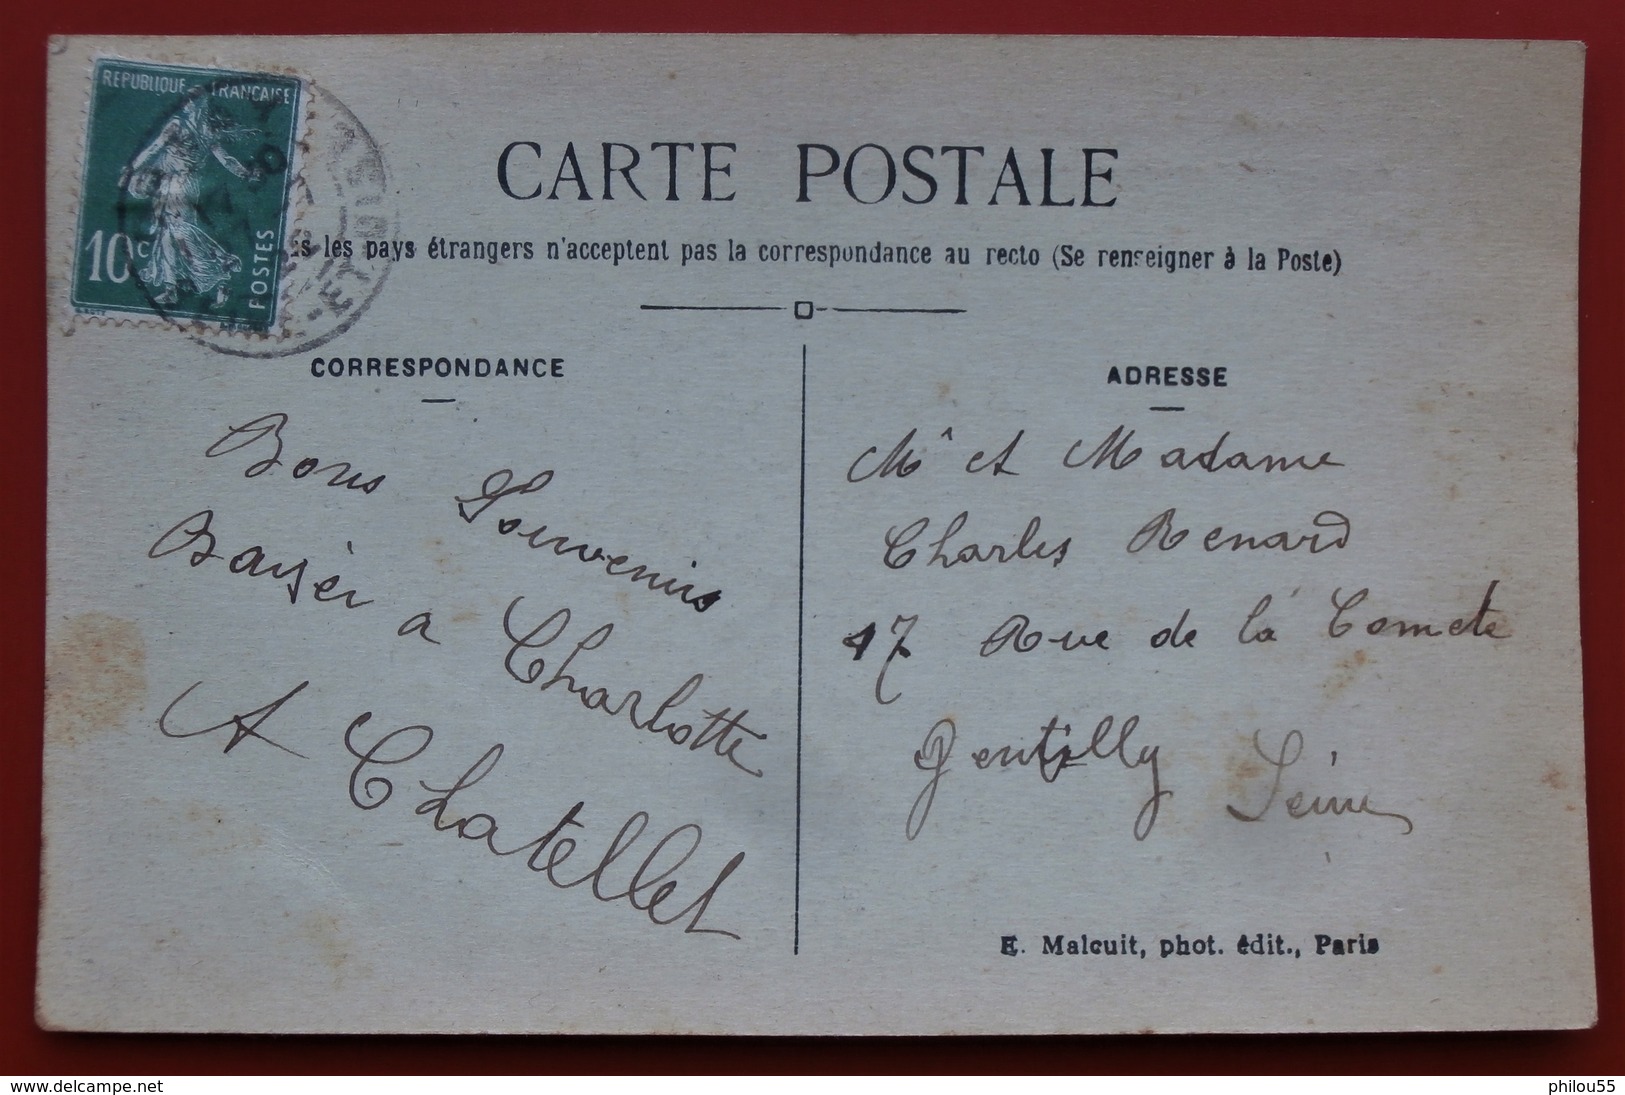 REPUBLIQUE FRANÇAISE
10c
POSTES
CARTE POSTALE
les pays étrangers n'acceptent pas la correspondance au recto (Se renseigner à la Poste)
CORRESPONDANCE
Bons Souvenirs
Baisèr a Charlotte
A Chatellet
ADRESSE
Mr et Madame
Charles Renard
17 Rue de la Comete
Gentilly Seine
E. Malcuit, phot. édit., Paris
www.delcampe.net
philou55